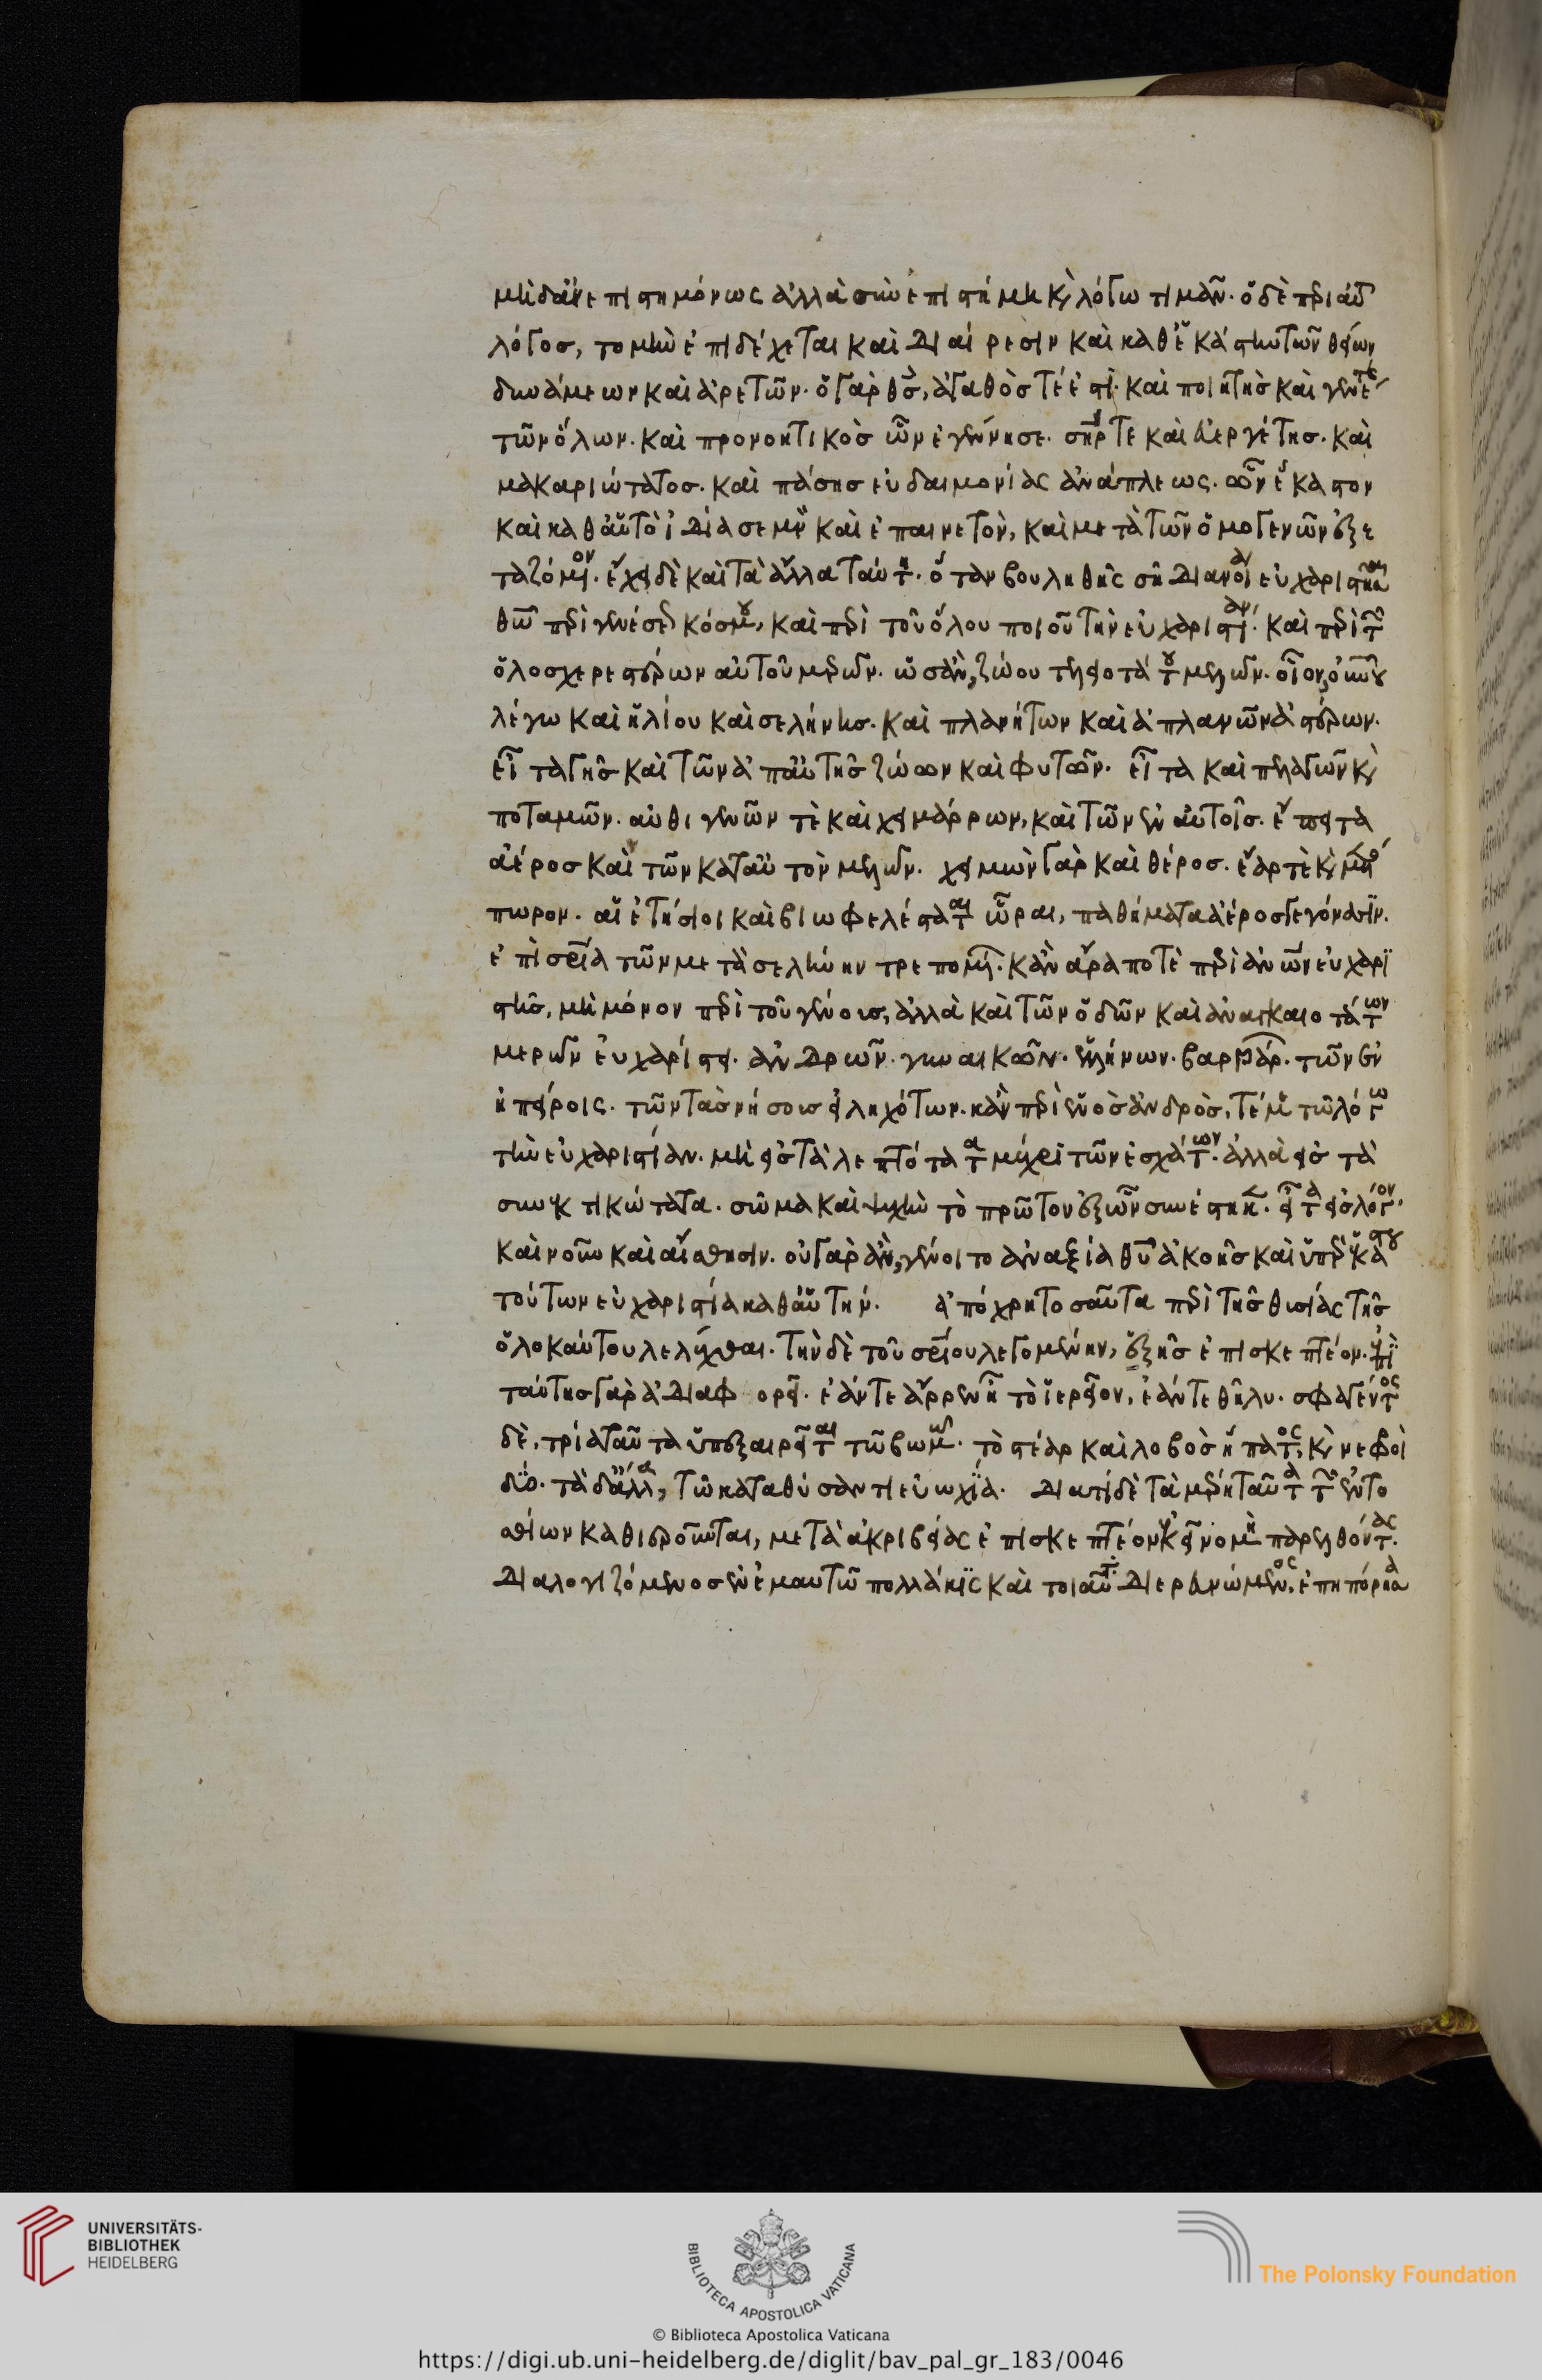 μὴ δ' ἀνεπιστημόνως ἀλλὰ σὺν ἐπιστήμη καὶ λόγω τιμᾶν. ὁ δὲ περὶ αὐτοῦ
λόγος, τομὴν ἐπιδέχεται καὶ διαίρεσιν καὶ καθ' ἑκάστην τῶν θείων
δυνάμεων καὶ ἀρετῶν. ὁ γὰρ θς, ἀγαθός τέ ἐστι. καὶ ποιητὴς καὶ γεννητὴς
τῶν ὅλων. καὶ προνοητικὸς ὧν ἐγέννησε. σηρ τε καὶ εὐεργέτης. καὶ
μακαριώτατος. καὶ πάσης εὐδαιμονίας ἀνάπλεως. ὧν ἕκαστον
καὶ καθ' αὑτὸ ἰδία σεμνὸν καὶ ἐπαινετὸν, καὶ μετὰ τῶν ὁμογενῶν ἐξε
ταζόμενον. ἔχει δὲ καὶ τὰ ἄλλα ταύτη. ὅταν βουληθῆς ὦ διάνοια εὐχαριστῆσαι
θεῶ περὶ γενέσεως κόσμου, καὶ περὶ τοῦ ὅλου ποιοῦ τὴν εὐχαριστίαν. καὶ περὶ τῶν
ὁλοσχερεστέρων αὐτοῦ μερῶν. ὡσὰν ζώου τελειοτάτου μελῶν. οἷον οὐνοῦ
λέγω καὶ ἡλίου καὶ σελήνης. καὶ πλανήτων καὶ ἀπλανῶν ἀστέρων.
εἶτα γῆς καὶ τῶν ἀπ' αὐτῆς ζώων καὶ φυτῶν. εἶτα καὶ πελαγῶν καὶ
ποταμῶν. αὐθιγενῶν τὲ καὶ χειμάρρων, καὶ τῶν ἐν αὐτοῖς. ἔπειτα
ἀέρος καὶ τῶν κατ' αὐτὸν μελῶν. χειμὼν γὰρ καὶ θέρος. ἔαρ τὲ καὶ μετό
πωρον. αἱ ἐτήσιοι καὶ βιωφελέσταται ὧραι, παθήματα ἀέρος γεγόνασιν.
ἐπὶ σρία τῶν μετὰ σελήνην τρεπομένου. κἂν ἄρα ποτὲ περὶ ἀνων εὐχαρι
στῆς, μὴ μόνον περὶ τοῦ γένους, ἀλλὰ καὶ τῶν εἰδῶν καὶ ἀναγκαιοτάτων
μερῶν εὐχαρίστει. ἀνδρῶν. γυναικῶν. ἑλλήνων. βαρβάρων. τῶν ἐν
ἠπείροις. τῶν τὰς νήσους εἰληχότων. κἂν περὶ ἑνὸς ἀνδρὸς, τέμνε τῶ λόγω
τὴν εὐχαριστίαν. μὴ εἰς τὰ λεπτότατα μέχρι τῶν ἐσχάτων. ἀλλὰ εἰς τὰ
συνεκτικώτατα. σῶμα καὶ ψυχὴν τὸ πρῶτον ἐξ ὧν συνέστηκεν. εἶτα εἰς λόγον,
καὶ νοῦν καὶ αἴσθησιν. οὐ γὰρ ἂν γένοιτο ἀναξία θυ ἀκοῆς καὶ ὑπὲρ ἑκάστου
τούτων εὐχαριστία καθ' αὑτήν. ἀπόχρη τοσαῦτα περὶ τῆς θυσίας τῆς
ὁλοκαύτου λελέχθαι. τὴν δὲ τοῦ σρίου λεγομένην, ἑξῆς ἐπισκεπτέον. ἐπὶ
ταύτης γὰρ ἀδιαφορεῖ. ἐάν τε ἄρρεν ἦ τὸ ἱερεῖον, ἐάν τε θῆλυ. σφαγέντος
δὲ, τρία ταῦτα ὑπεξαιρεῖται τῶ βωμῶ. τὸ στέαρ καὶ λοβὸς ἥπατος, καὶ νεφροὶ
δύο. τὰ δ' ἄλλα, τῶ καταθύσαντι εὐωχία. διατί δὲ τὰ μέρη ταῦτα τῶν ἐντο
σθίων καθιεροῦται, μετὰ ἀκριβείας ἐπισκεπτέον κεῖνο μὴ παρελθόντας.
διαλογιζόμενος ἐν ἐμαυτῶ πολλάκις καὶ τοιαῦτα διερευνώμενος, ἐπηπόρησα
UNIVERSITÄTS-
BIBLIOTHEK
HEIDELBERG
BIBLIOTECA APOSTOLICA VATICANA
The Polonsky Foundation
© Biblioteca Apostolica Vaticana
https://digi.ub.uni-heidelberg.de/diglit/bav_pal_gr_183/0046